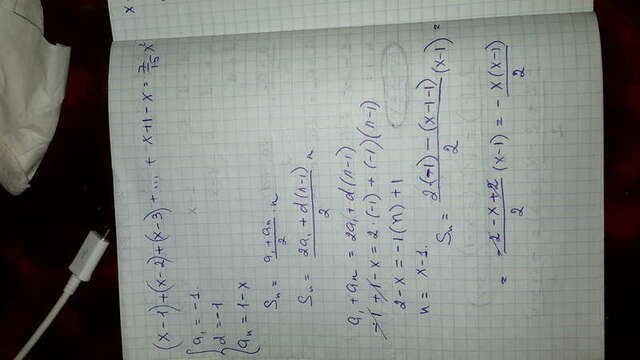 (x-1)+(x-2)+(x-3)+...+x+1-x=7/15 x²
{a₁=-1.
d=-1
aₙ=1-x
Sₙ = (a₁+aₙ)/2 · n
Sₙ = (2a₁+d(n-1))/2 n
a₁+aₙ = 2a₁+d(n-1)
-1+1-x = 2(-1)+(-1)(n-1)
2-x = -1(n)+1
n = x-1.
Sₙ = (2(-1)-(x-1-1))/2 (x-1) =
= (-2-x+2)/2 (x-1) = - x(x-1)/2